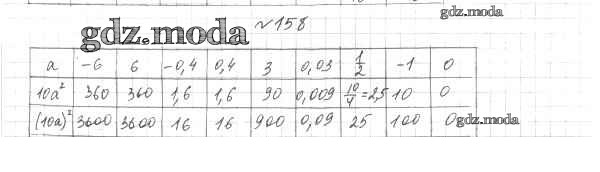 gdz.moda
№158
gdz.moda
a -6 6 -0,4 0,4 3 0,03 1/2 -1 0
10a² 360 360 1,6 1,6 90 0,009 10/4=2,5 10 0
(10a)² 3600 3600 16 16 900 0,09 25 100 0
gdz.moda